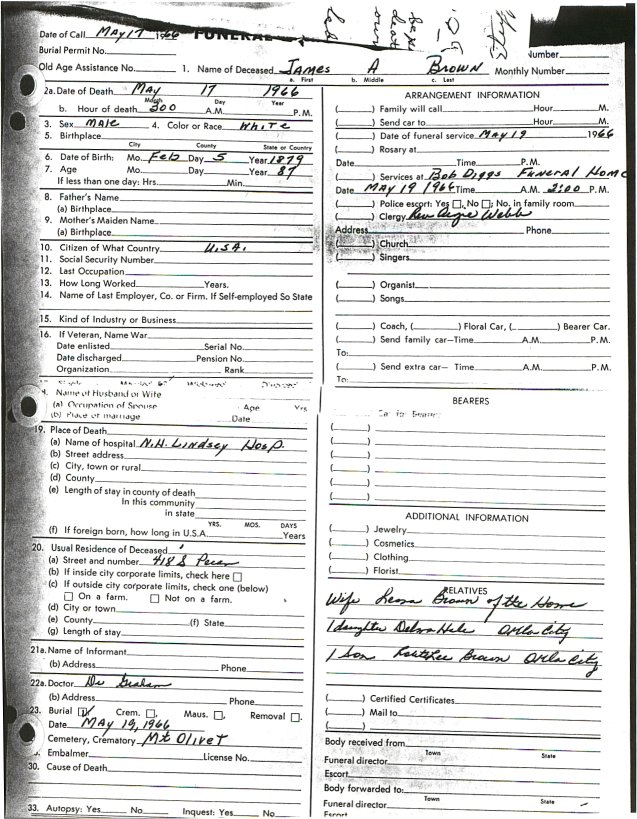 Date of Call May 17 1966 FUNERAL
Burial Permit No.
Number
Old Age Assistance No. 1. Name of Deceased James A Brown Monthly Number
a. First b. Middle c. Last
2a. Date of Death May 17 1966
Month Day Year
b. Hour of death 300 A.M. P.M.
3. Sex Male 4. Color or Race White
5. Birthplace
City County State or Country
6. Date of Birth: Mo. Feb Day 5 Year 1879
7. Age Mo. Day Year 87
If less than one day: Hrs. Min.
8. Father's Name
(a) Birthplace
9. Mother's Maiden Name
(a) Birthplace
10. Citizen of What Country U.S.A.
11. Social Security Number
12. Last Occupation
13. How Long Worked Years.
14. Name of Last Employer, Co. or Firm. If Self-employed So State
15. Kind of Industry or Business
16. If Veteran, Name War
Date enlisted Serial No.
Date discharged Pension No.
Organization Rank
Name of Husband or Wife
(a) Occupation of Spouse Age Yrs
(b) Place of marriage Date
19. Place of Death
(a) Name of hospital N.H. Lindsey Hosp.
(b) Street address
(c) City, town or rural
(d) County
(e) Length of stay in county of death
In this community
in state
YRS. MOS. DAYS
(f) If foreign born, how long in U.S.A. Years
20. Usual Residence of Deceased
(a) Street and number 418 S Pecan
(b) If inside city corporate limits, check here
(c) If outside city corporate limits, check one (below)
On a farm. Not on a farm.
(d) City or town
(e) County (f) State
(g) Length of stay
21a. Name of Informant
(b) Address Phone
22a. Doctor Dr Graham
(b) Address Phone
23. Burial Crem. Maus. Removal
Date May 19, 1966
Cemetery, Crematory Mt Olivet
Embalmer License No.
30. Cause of Death
33. Autopsy: Yes No Inquest: Yes No
ARRANGEMENT INFORMATION
( ) Family will call Hour M.
( ) Send car to Hour M.
( ) Date of funeral service May 19 1966
( ) Rosary at
Date Time P.M.
( ) Services at Bob Diggs Funeral Home
Date May 19 1966 Time A.M. 2:00 P.M.
( ) Police escort: Yes , No ; No. in family room
( ) Clergy Rev Webb
Address Phone
( ) Church
( ) Singers
( ) Organist
( ) Songs
( ) Coach, ( ) Floral Car, ( ) Bearer Car.
( ) Send family car—Time A.M. P.M.
To:
( ) Send extra car— Time A.M. P.M.
To:
BEARERS
( ) Car for Bearers
( )
( )
( )
( )
( )
( )
ADDITIONAL INFORMATION
( ) Jewelry
( ) Cosmetics
( ) Clothing
( ) Florist
RELATIVES
Wife Brown of the Home
1 daughter Hale Okla City
1 Son Brown Okla City
( ) Certified Certificates
( ) Mail to
( )
Body received from
Town State
Funeral director
Escort
Body forwarded to:
Town State
Funeral director
Escort